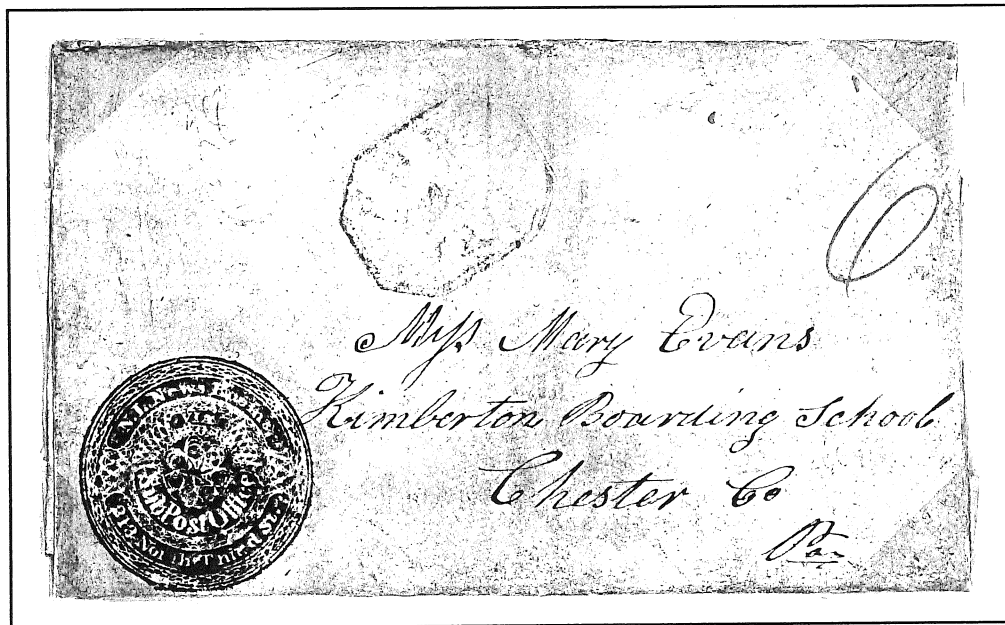 6
Miss Mary Evans
Kimberton Boarding School
Chester Co
Pa
News
Sub Post Office
213 North Third St.